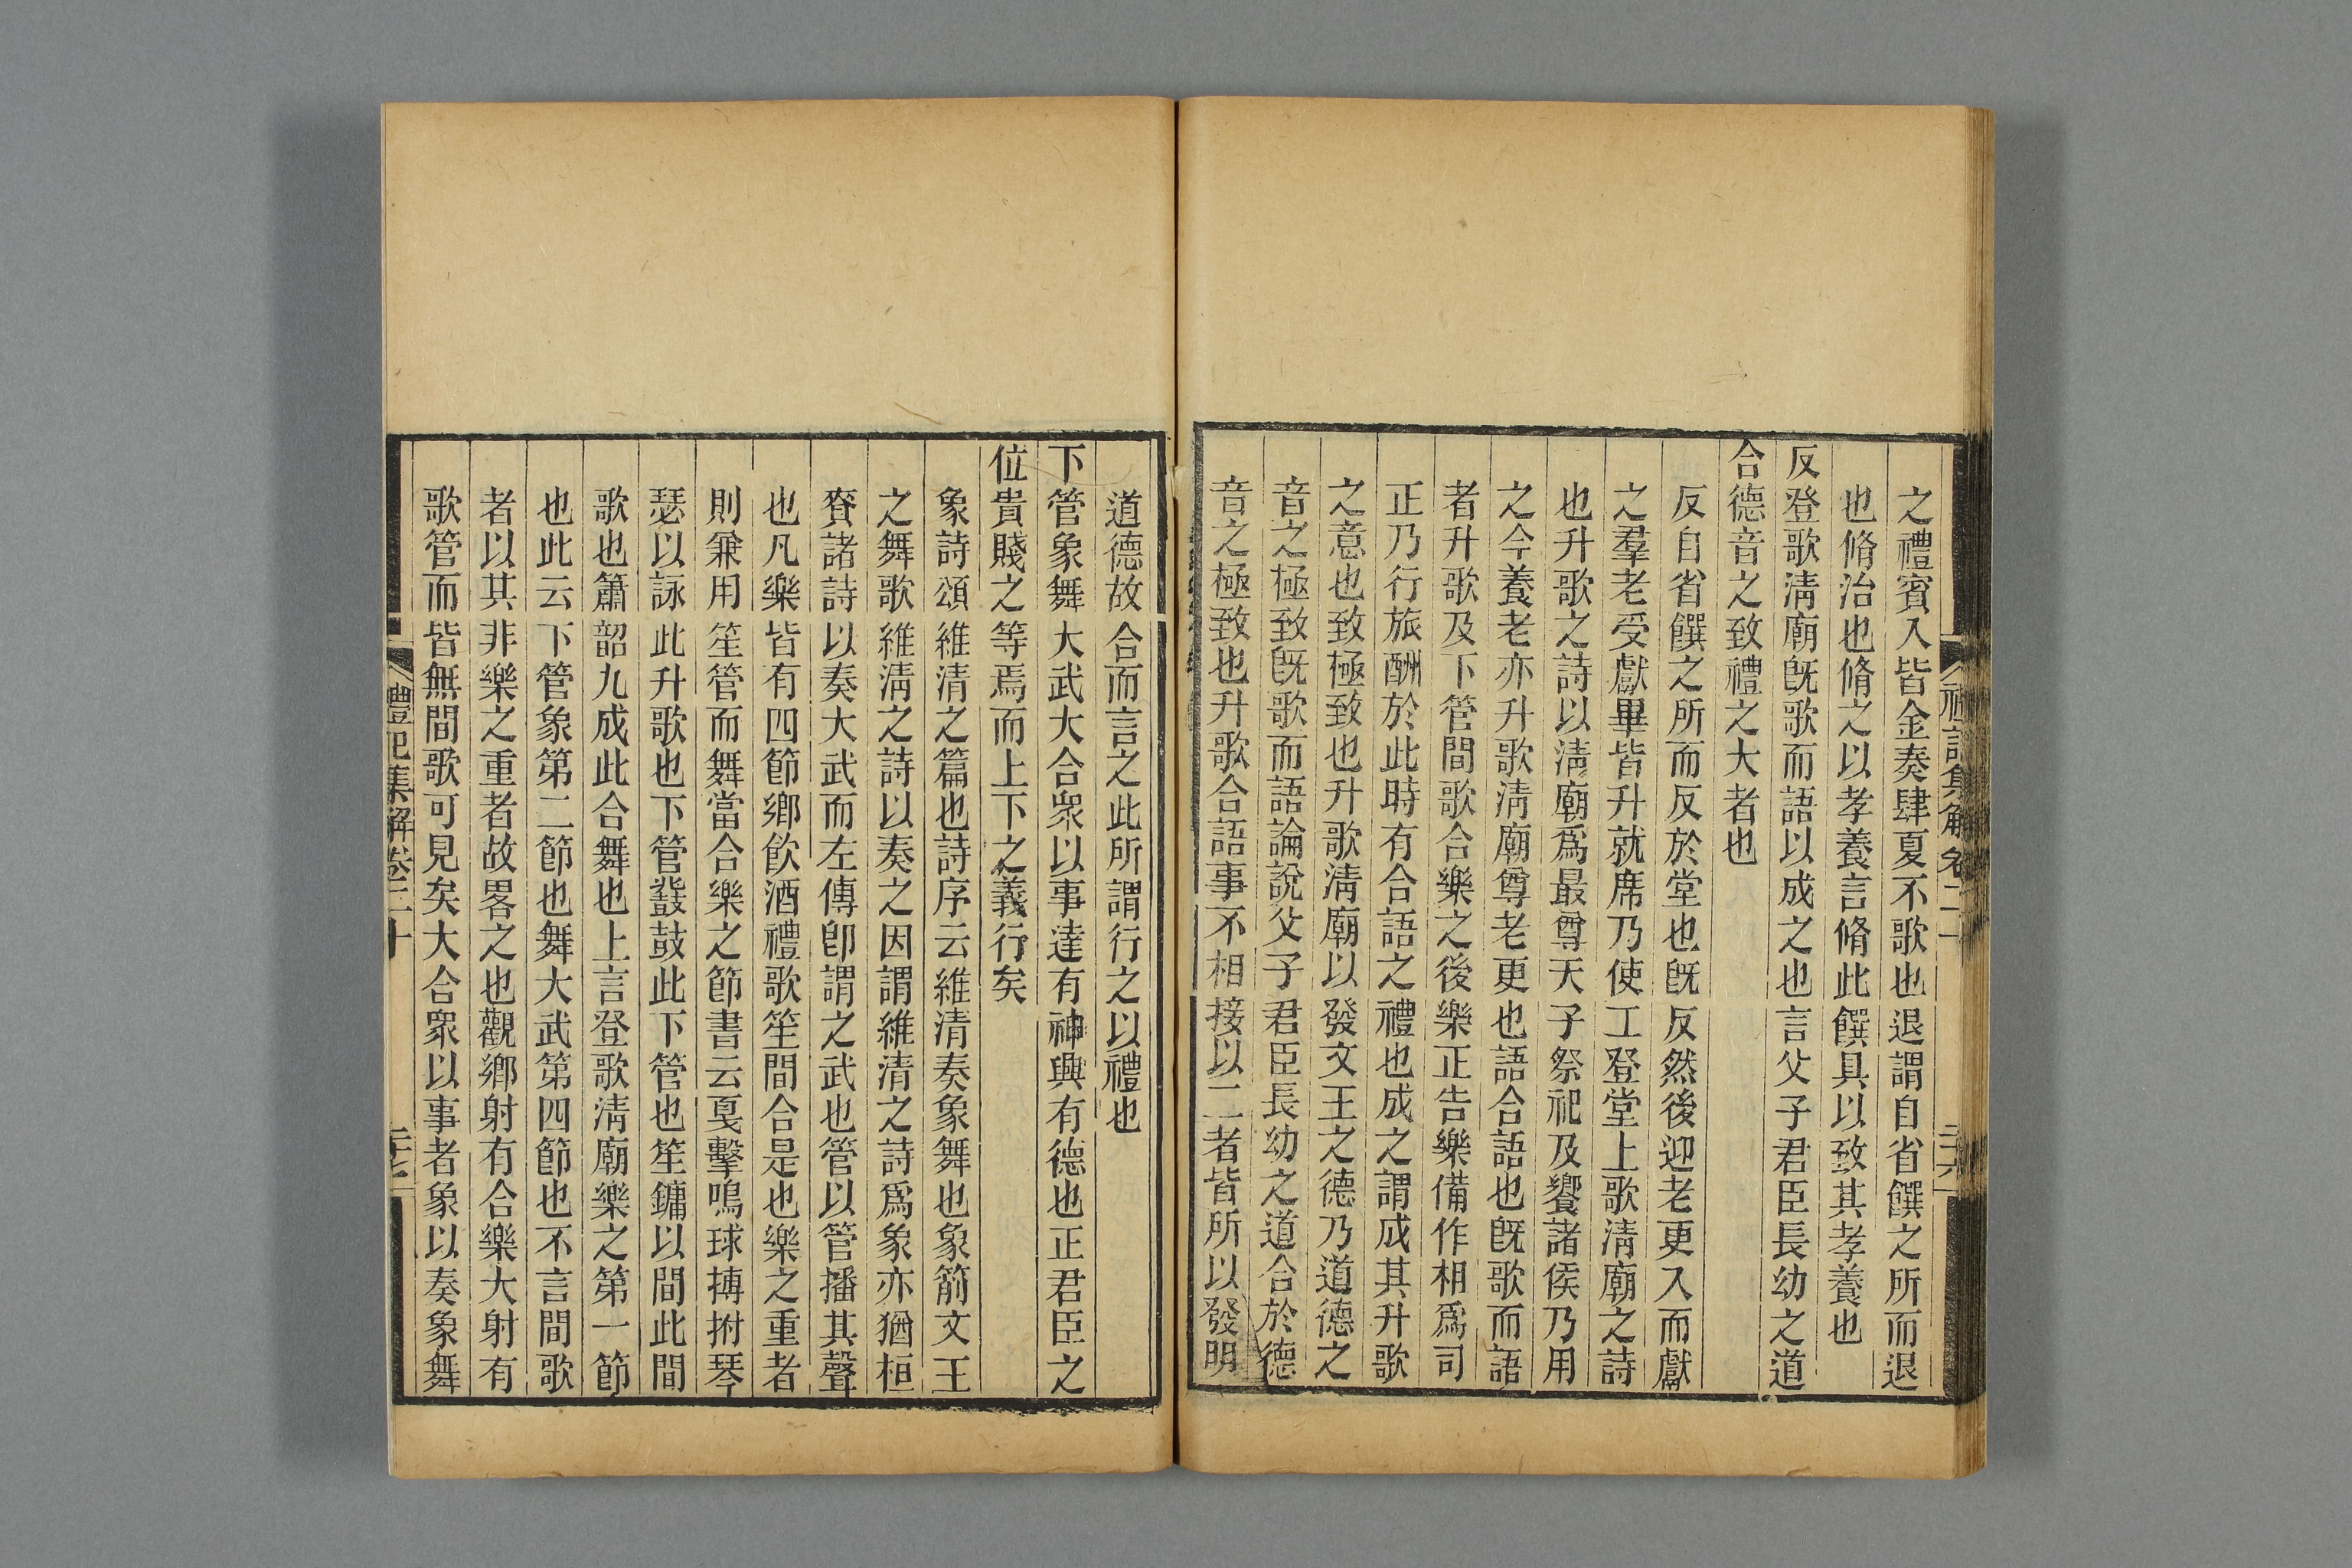 之禮賓入皆金奏肆夏不歌也退謂自省饌之所而退
也脩治也脩之以孝養言脩此饌具以致其孝養也
反登歌淸廟旣歌而語以成之也言父子君臣長幼之道
合德音之致禮之大者也
反自省饌之所而反於堂也旣反然後迎老更入而獻
之羣老受獻畢皆升就席乃使工登堂上歌淸廟之詩
也升歌之詩以淸廟爲最尊天子祭祀及饗諸侯乃用
之今養老亦升歌淸廟尊老更也語合語也旣歌而語
者升歌及下管間歌合樂之後樂正告樂備作相爲司
正乃行旅酬於此時有合語之禮也成之謂成其升歌
之意也致極致也升歌淸廟以發文王之德乃道德之
音之極致旣歌而語論說父子君臣長幼之道合於德
音之極致也升歌合語事不相接以二者皆所以發明
道德故合而言之此所謂行之以禮也
下管象舞大武大合衆以事達有神興有德也正君臣之
位貴賤之等焉而上下之義行矣
象詩頌維清之篇也詩序云維清奏象舞也象箾文王
之舞歌維淸之詩以奏之因謂維清之詩爲象亦猶桓
賚諸詩以奏大武而左傳卽謂之武也管以管播其聲
也凡樂皆有四節鄉飲酒禮歌笙間合是也樂之重者
則兼用笙管而舞當合樂之節書云戛擊鳴球搏拊琴
瑟以詠此升歌也下管鼗鼓此下管也笙鏞以間此間
歌也簫韶九成此合舞也上言登歌淸廟樂之第一節
也此云下管象第二節也舞大武第四節也不言間歌
者以其非樂之重者故畧之也觀鄉射有合樂大射有
歌管而皆無間歌可見矣大合衆以事者象以奏象舞